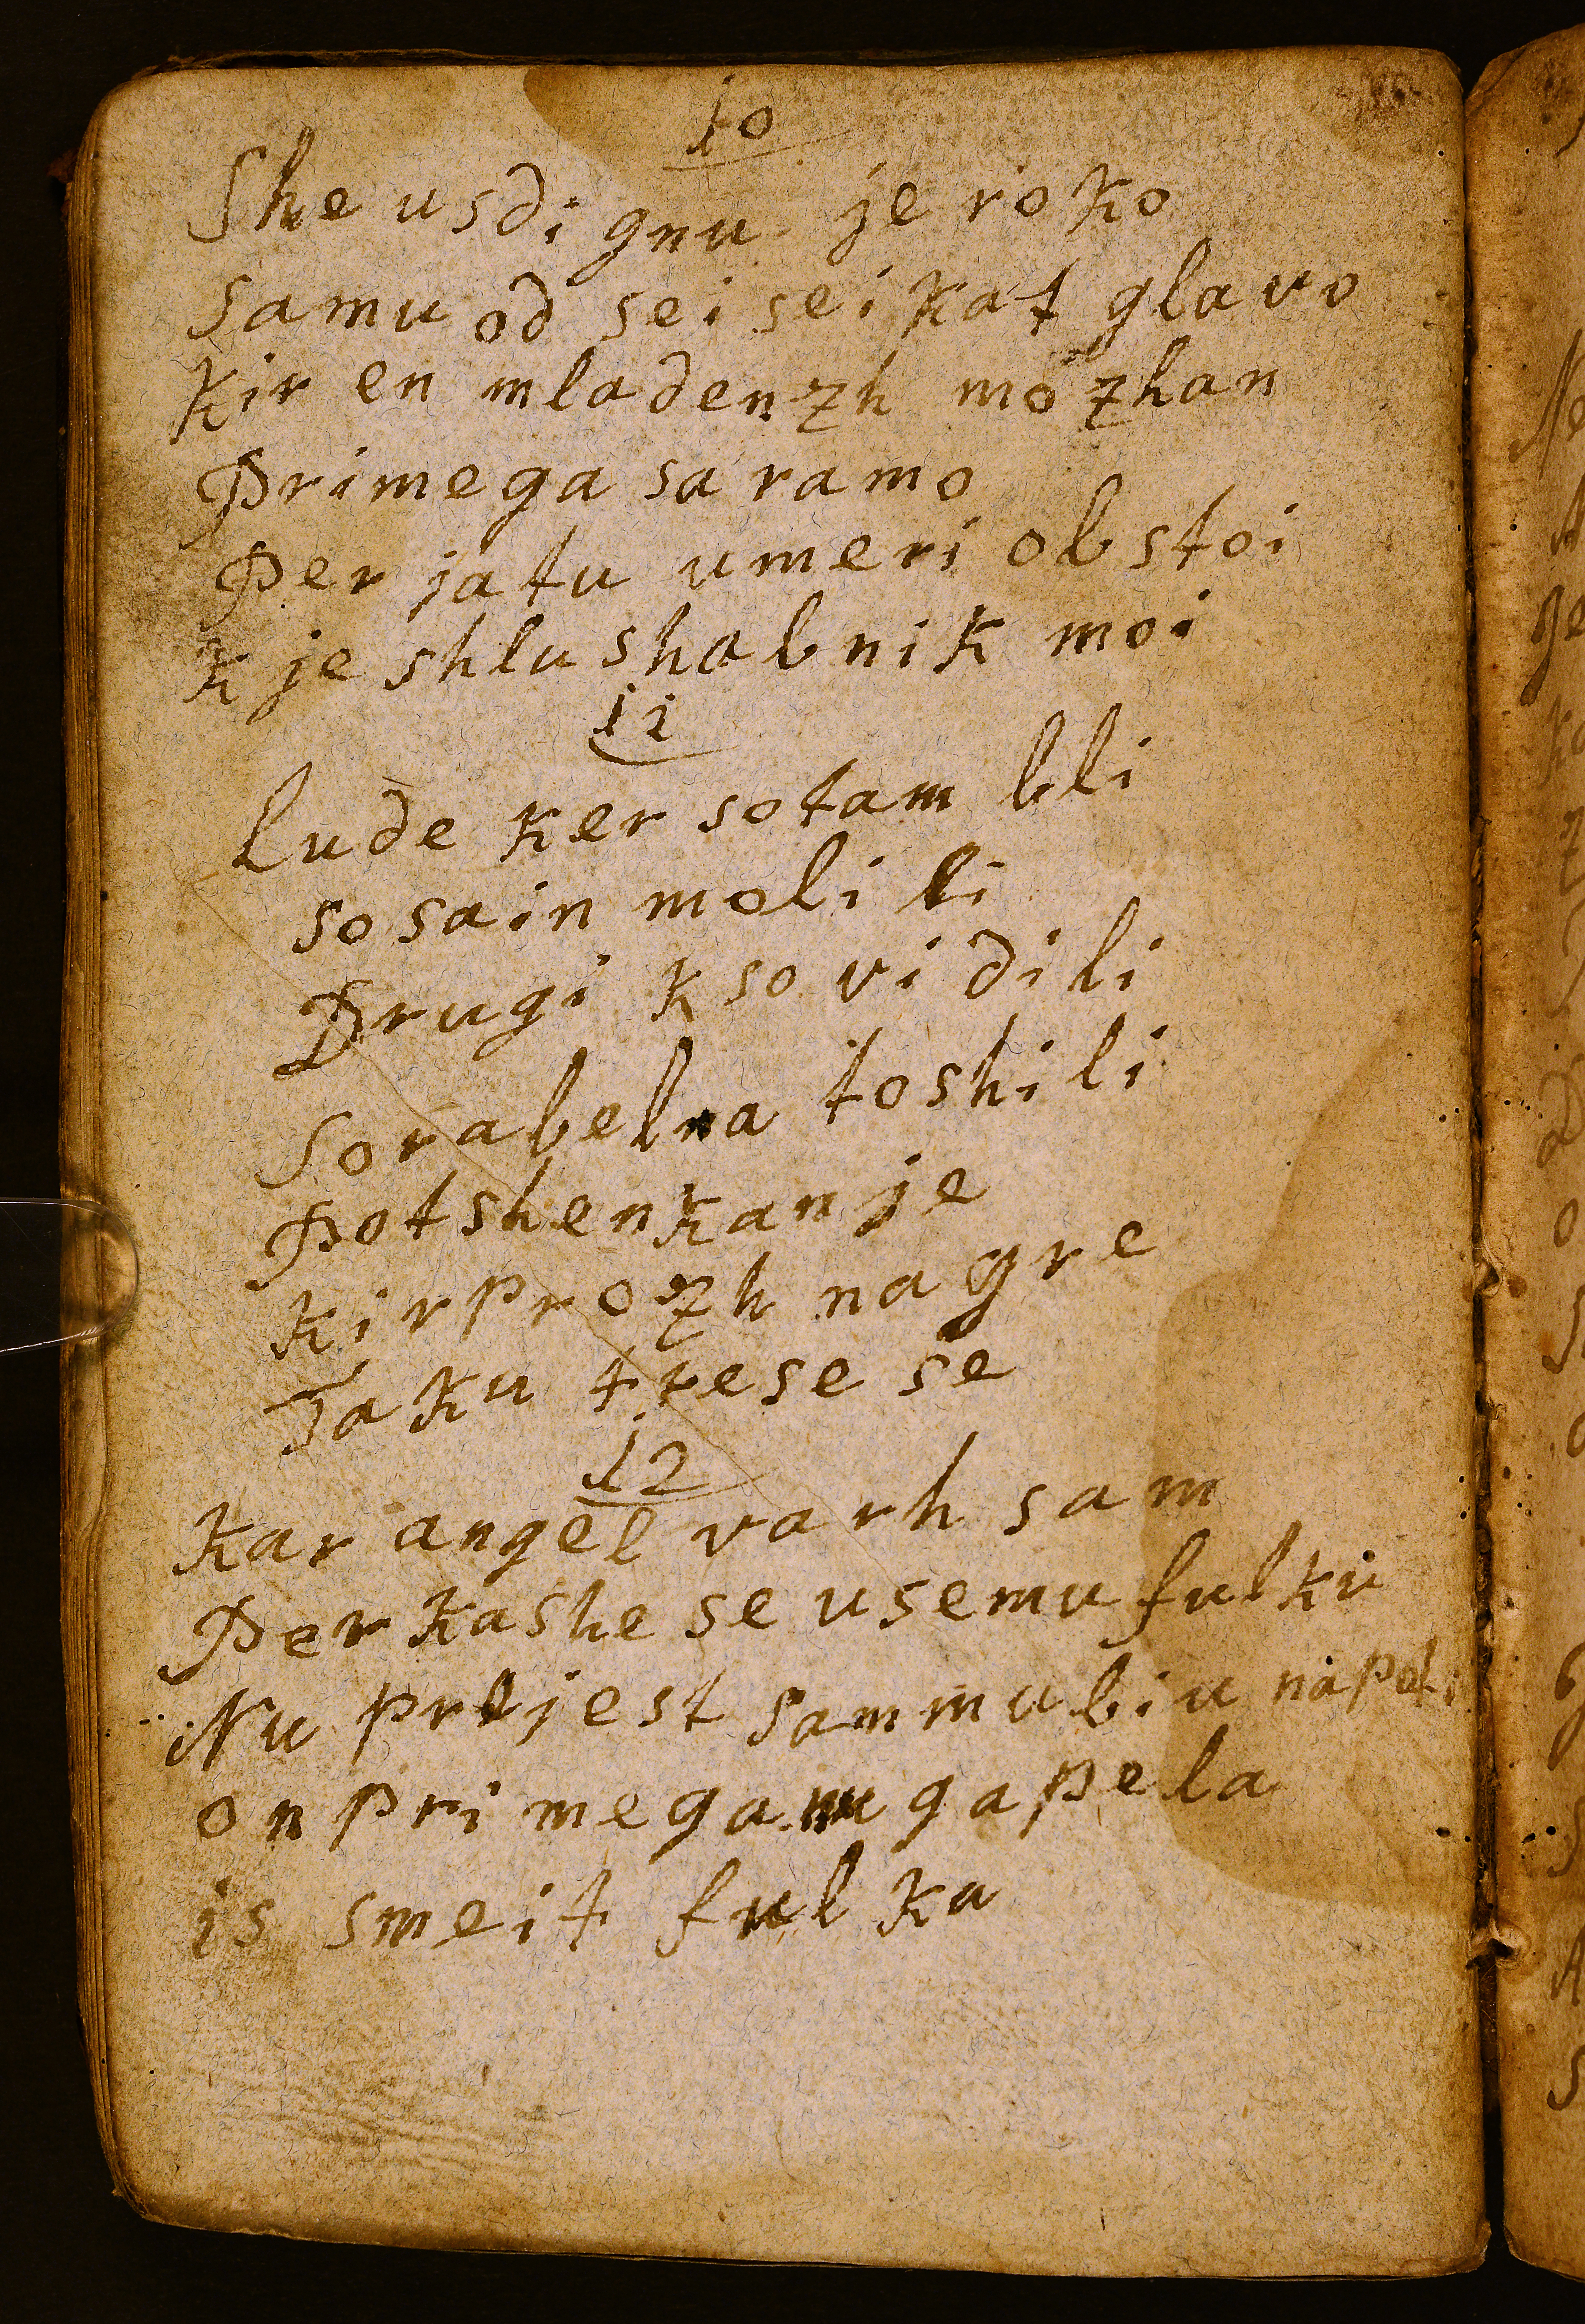 10
She usdignu je roko
samu od sei seikat glavo
kir en mladenzh mozhan
Primega sa ramo
Per jatu umeri obstoi
k je shlushabnik moi
11
lude ker sotam bli
so sain molili
Drugi k so vidili
Sorabelna toshili
Potshenkanje
kir prozh na gre
Taku trese se
12
kar angel varh sam
Perkashe se usemu fulku
Nu prejest sam mu biu napoti
on primega nu gapela
is smeit fulka